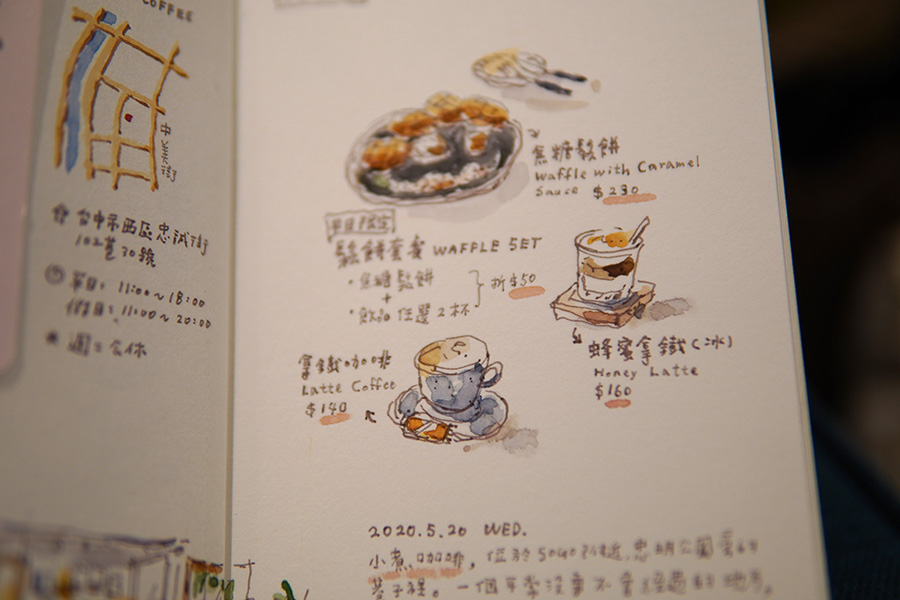 COFFEE
中美街
台中市西區忠誠街
102巷30號
平日: 11:00~18:00
假日: 11:00~20:00
公休
焦糖鬆餅
Waffle with Caramel
Sauce $230
平日限定
鬆餅套餐 WAFFLE SET
・焦糖鬆餅
+
・飲品任選2杯
折$50
蜂蜜拿鐵(冰)
Honey Latte
$160
拿鐵咖啡
Latte Coffee
$140
2020.5.20 WED.
小煮咖啡, 位於SOGO附近, 忠明公園旁的
巷子裡。一個平常沒事不會經過的地方。